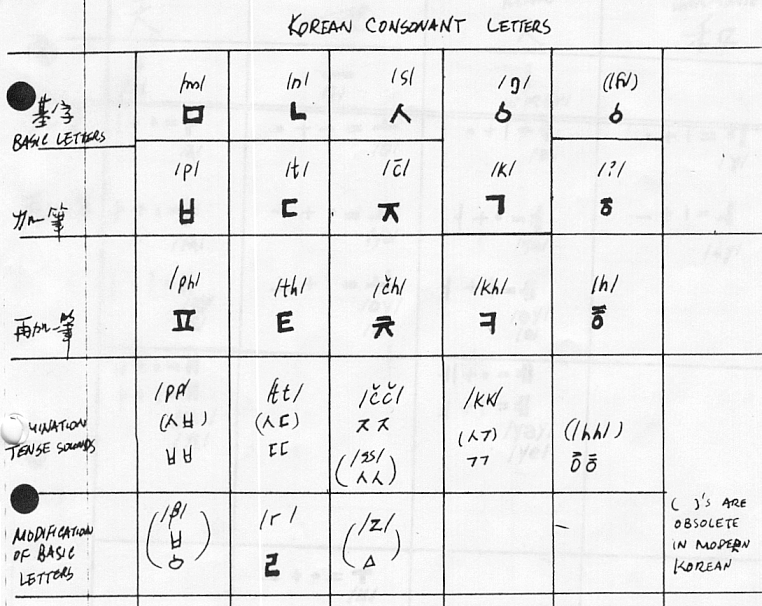 KOREAN CONSONANT LETTERS
/m/ /n/ /s/ /ŋ/
基字 ㅁ ㄴ ㅅ ㆁ
BASIC LETTERS
/p/ /t/ /č/ /k/ /ʔ/
加一筆 ㅂ ㄷ ㅈ ㄱ ㆆ
/ph/ /th/ /čh/ /kh/ /h/
再加一筆 ㅍ ㅌ ㅊ ㅋ ㅎ
/pp/ /tt/ /čč/ /kk/
(ㅅㅂ) (ㅅㄷ) ㅈㅈ (ㅅㄱ) (/hh/)
TENSE SOUNDS ㅂㅂ ㄷㄷ (/ss/ ㄱㄱ ㅎㅎ
ㅅㅅ)
MODIFICATION (/β/ /r/ (/z/
OF BASIC ㅸ) ㄹ ㅿ)
LETTERS
( )'S ARE
OBSOLETE
IN MODERN
KOREAN